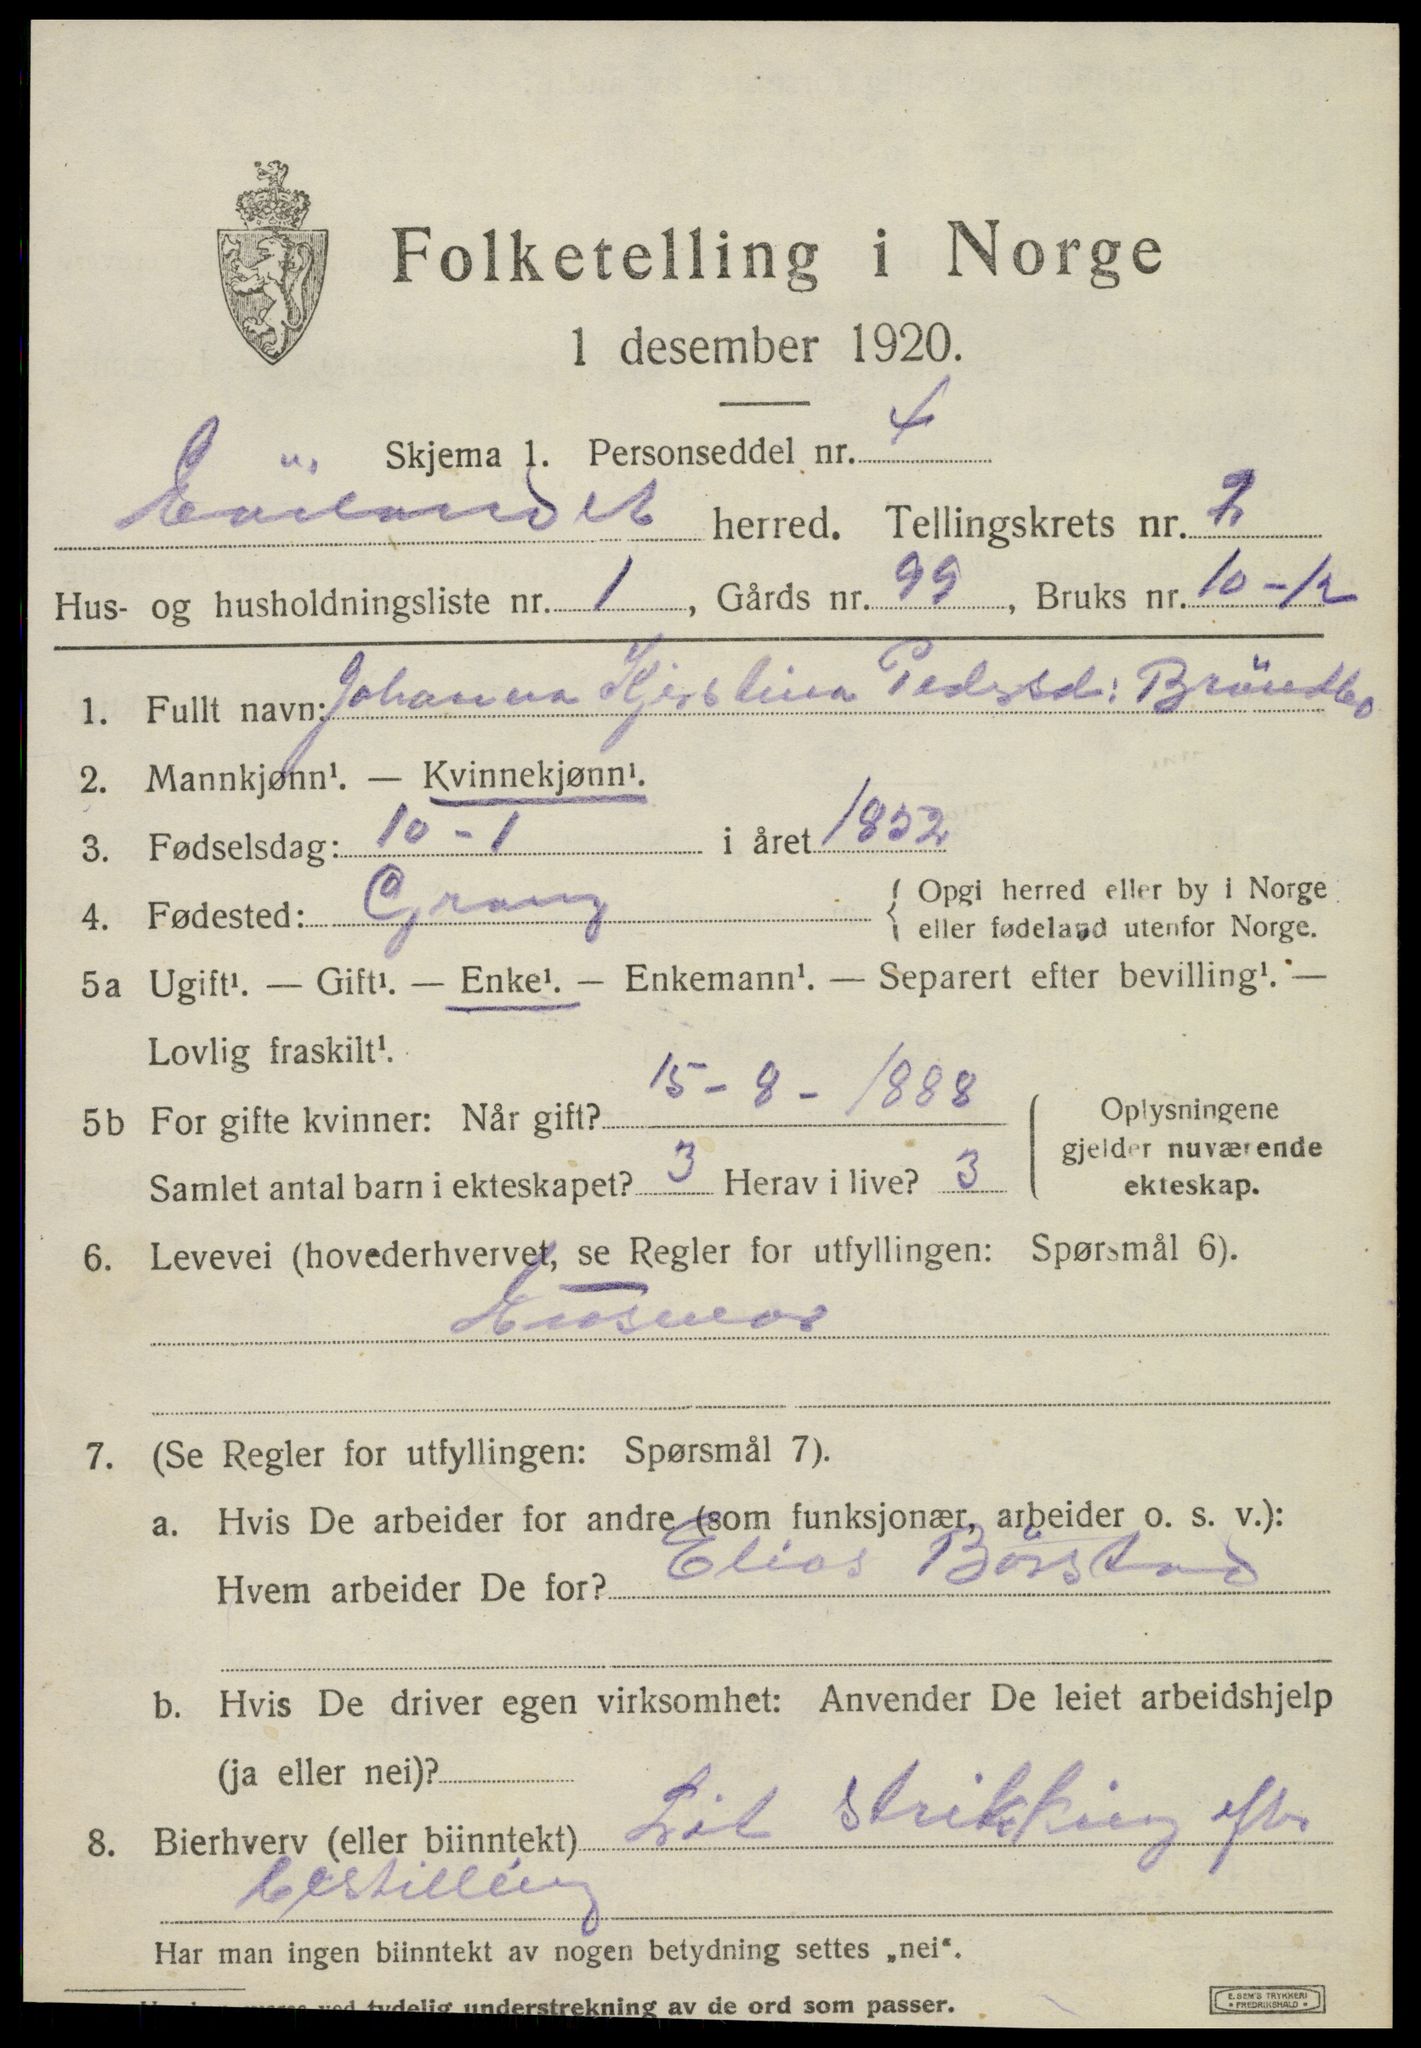 Folketelling i Norge
1 desember 1920.
Skjema 1. Personseddel nr. 4
herred. Tellingskrets nr. 2
Hus- og husholdningsliste nr. 1, Gårds nr. 99, Bruks nr. 10-12
1. Fullt navn: Johanna Kjerstina Pedersd: Bröndbo
2. Mannkjønn¹. — Kvinnekjønn¹.
3. Fødselsdag: 10-1 i året 1852
4. Fødested: Grong { Opgi herred eller by i Norge
eller fødeland utenfor Norge.
5a Ugift¹. — Gift¹. — Enke¹. — Enkemann¹. — Separert efter bevilling¹. —
Lovlig fraskilt¹.
5b For gifte kvinner: Når gift? 15-8-1888
Samlet antal barn i ekteskapet? 3 Herav i live? 3
Oplysningene
gjelder nuværende
ekteskap.
6. Levevei (hovederhvervet, se Regler for utfyllingen: Spørsmål 6).
7. (Se Regler for utfyllingen: Spørsmål 7).
a. Hvis De arbeider for andre (som funksjonær, arbeider o. s. v.):
Hvem arbeider De for? Elias Börstad
b. Hvis De driver egen virksomhet: Anvender De leiet arbeidshjelp
(ja eller nei)?
8. Bierhverv (eller biinntekt) Lit strikking eftr
bestilling
Har man ingen biinntekt av nogen betydning settes „nei“.
ved tydelig understrekning av de ord som passer.
E. SEM'S TRYKKERI
FREDRIKSHALD